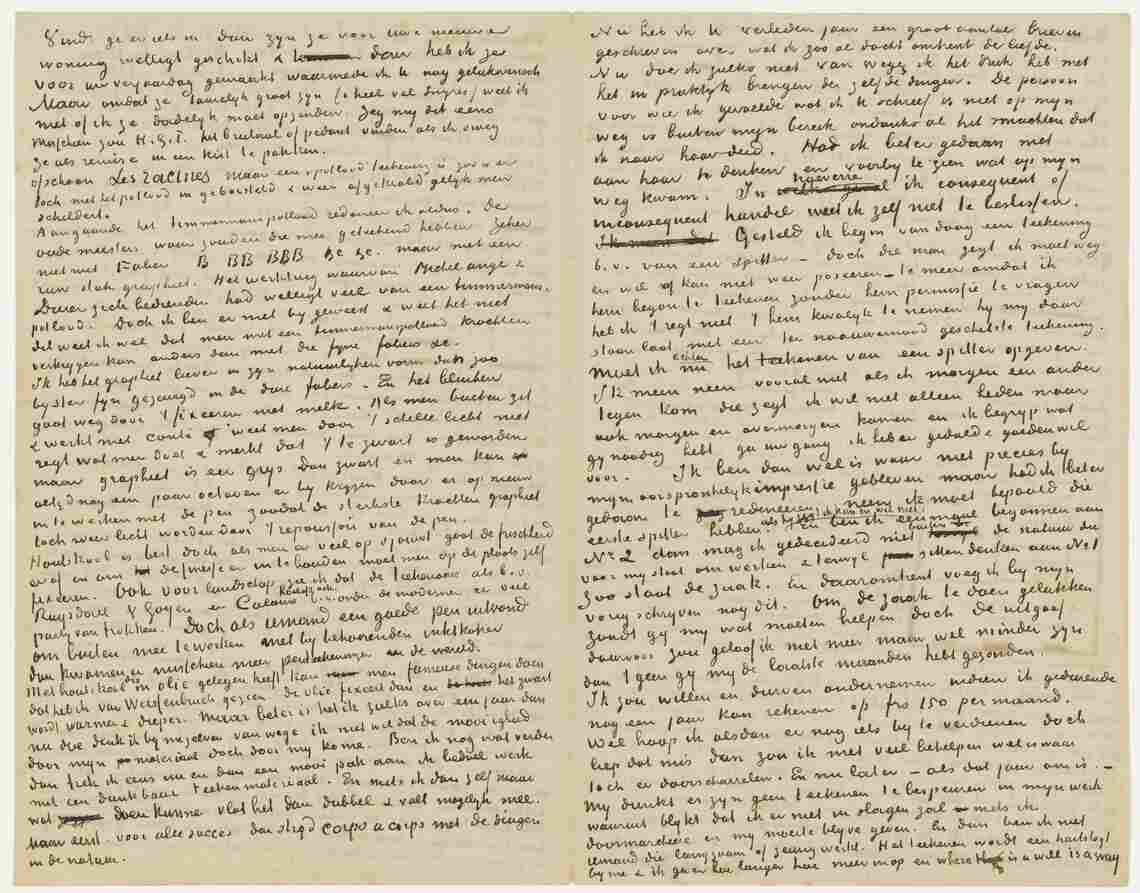 Vindt ge er iets in dan zyn ze voor Uwe nieuwe
woning welligt geschikt & dan heb ik ze
voor uw verjaardag gemaakt waarmede ik U nog gelukwensch
Maar omdat ze tamelyk groot zyn (& heel vel Ingres) weet ik
niet of ik ze dadelyk moet opzenden. Zeg my dit eens
Misschien zou H.G.T. het brutaal of pedant vinden als ik vroeg
ze als remise in een kist te pakken.
Ofschoon Les racines maar een potlood teekening is zoo is er
toch met het potlood in geborsteld & weer afgekrabd gelyk men
schildert.
Aangaande het timmermanspotlood redeneer ik aldus. De
oude meesters waar zouden die mee geteekend hebben. Zeker
niet met Faber B BB BBB &c &c. maar met een
ruw stuk graphiet. Het werktuig waarvan Michel ange &
Durer zich bedienden had welligt veel van een timmermans-
potlood. Doch ik ben er niet by geweest & weet het niet
dit weet ik wel dat men met een timmermanspotlood krachten
verkrygen kan anders dan met die fyne fabers &c.
Ik heb het graphiet liever in zyn natuurlyken vorm dan zoo
byster fyn gezaagd in de dure fabers. En het blinken
gaat weg door 't fixeeren met melk. Als men buiten zit
& werkt met conté weet men door 't schelle licht niet
regt wat men doet & merkt dat 't te zwart is geworden
maar graphiet is een grys dan zwart en men kan
altyd nog een paar octaven er by krygen door er op nieuw
in te werken met de pen zoodat de sterkste krachten graphiet
toch weer licht worden door 't repoussoir van de pen.
Houtskool is best doch als men er veel op vroomt gaat de frischheid
er af en om de finesse er in te houden moet men op de plaats zelf
fixeeren. Ook voor landschap zie ik dat de teekenaars als b.v.
Ruysdael & Goyen en Calame Roelofs ook b.v. onder de moderne er veel
party van trokken. Doch als iemand een goede pen uitvond
om buiten mee te werken met by behoorenden inktkoker
dan kwamen er misschien meer penteekeningen in de wereld.
Met houtskool die in olie gelegen heeft kan men fameuse dingen doen
dat heb ik van Weissenbruch gezien. de olie fixeert dan en het zwart
wordt warmer & dieper. Maar beter is het ik zulks over een jaar dan
nu doe denk ik by mezelven van wege ik niet wil dat de mooiigheid
door myn materiaal doch door my kome. Ben ik nog wat verder
dan trek ik eens nu en dan een mooi pak aan ik bedoel werk
met een dankbaar teekenmateriaal. En mits ik dan zelf maar
wat doen kunne vlot het dan dubbel & valt mogelyk mee.
Maar eerst voor alle succès den stryd corps a corps met de dingen
in de natuur.
Nu heb ik U verleden jaar een groot aantal brieven
geschreven over wat ik zoo al dacht omtrent de liefde.
Nu doe ik zulks niet van wege ik het druk heb met
het in praktyk brengen der zelfde dingen. De persoon
voor wie ik gevoelde wat ik U schreef is niet op myn
weg is buiten myn bereik ondanks al het smachten dat
ik naar haar deed. Had ik beter gedaan met
aan haar te denken en voorby te zien wat op myn
weg kwam. In hoeverre ik consequent of
inconsequent handel weet ik zelf niet te beslissen.
Ik meen dat Gesteld ik begin van daag een teekening
b.v. van een spitter – doch die man zegt ik moet weg
en wil of kan niet weer poseren – te meer omdat ik
hem begon te teekenen zonder hem permissie te vragen
heb ik 't regt niet 't hem kwalyk te nemen hy my daar
staan laat met een ter nauwernood geschetste teekening.
Moet ik echter nu het teekenen van een spitter opgeven.
Ik meen neen vooral niet als ik morgen een ander
tegen kom die zegt ik wil niet alleen heden maar
ook morgen en overmorgen komen en ik begryp wat
gy noodig hebt ga uw gang ik heb er geduld & goeden wil
voor. Ik ben dan wel is waar niet precies by
myn oorspronkelyk impressie gebleven maar had ik beter
gedaan te redeneeren neen ik moet bepaald die
eerste spitter hebben als hy zegt ik kan en wil niet. En ben ik eenmaal begonnen aan
No 2 dan mag ik gedecideerd niet buiten de natuur die
voor my staat om werken & terwyl zitten denken aan No 1
Zoo staat de zaak. En daaromtrent voeg ik by myn
vorig schryven nog dit. Om de zaak te doen gelukken
zoudt gy my wat moeten helpen doch de uitgaaf
daarvoor zou geloof ik niet meer maar wel minder zyn
dan 't geen gy my de laatste maanden hebt gezonden.
Ik zou willen en durven ondernemen indien ik gedurende
nog een jaar kan rekenen op frs 150 per maand.
Wel hoop ik alsdan er nog iets by te verdienen doch
heb dit mis dan zou ik met veel behelpen wel is waar
toch er doorscharrelen. En nu later – als dat jaar om is. –
My dunkt er zyn geen teekenen te bespeuren in myn werk
waaruit blykt dat ik er niet in slagen zal mits ik
doormarcheere en my moeite blyve geven. En dan ben ik niet
iemand die langzaam of zeurig werkt. Het teekenen wordt een hartstogt
by me & ik ga er hoe langer hoe meer in op en where is a will is a way